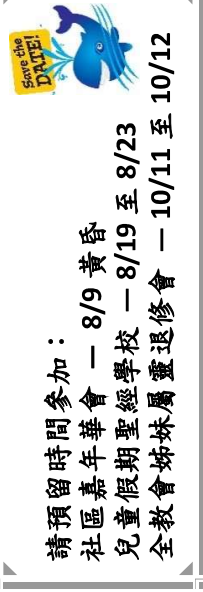 Save the
DATE!
請預留時間參加：
社區嘉年華會 — 8/9 黃昏
兒童假期聖經學校 — 8/19 至 8/23
全教會姊妹屬靈退修會 — 10/11 至 10/12